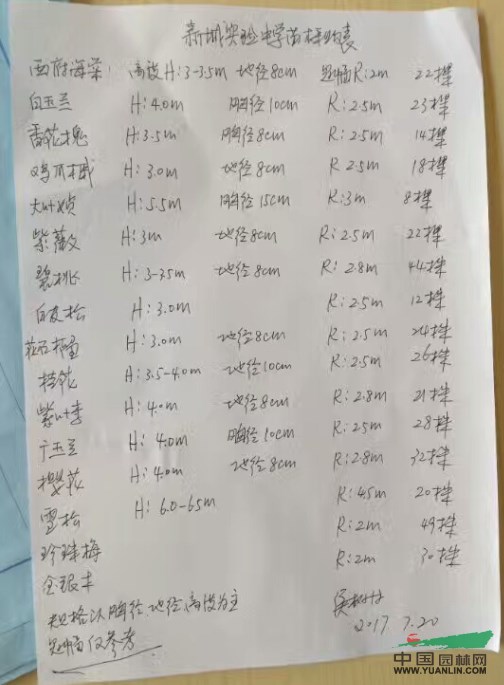 新城实验中学苗木明表
西府海棠 高度H:3-3.5m 地径8cm 冠幅R:2m 22棵
白玉兰 H:4.0m 胸径10cm R:2.5m 23棵
香花槐 H:3.5m 胸径8cm R:2.5m 14棵
鸡爪槭 H:3.0m 地径8cm R 2.5m 18棵
大叶女贞 H:5.5m 胸径15cm R:3m 8棵
紫薇 H:3m 地径8cm R:2.5m 22棵
碧桃 H:3-3.5m 地径8cm R:2.8m 44棵
白皮松 H:3.0m R:2.5m 12棵
花石榴 H:3.0m 地径8cm R:2.5m 24棵
桂花 H:3.5-4.0m 地径10cm R:2.5m 26棵
紫叶李 H:4.0m 地径8cm R:2.8m 21棵
广玉兰 H:4.0m 胸径10cm R:2.5m 28棵
樱花 H:4.0m 地径8cm R:2.8m 32棵
雪松 H:6.0-6.5m R:4.5m 20棵
珍珠梅 R:2m 49棵
金银木 R:2m 30棵
规格以胸径、地径、高度为主
冠幅仅参考
2017 7.20
中国园林网
WWW.YUANLIN.COM